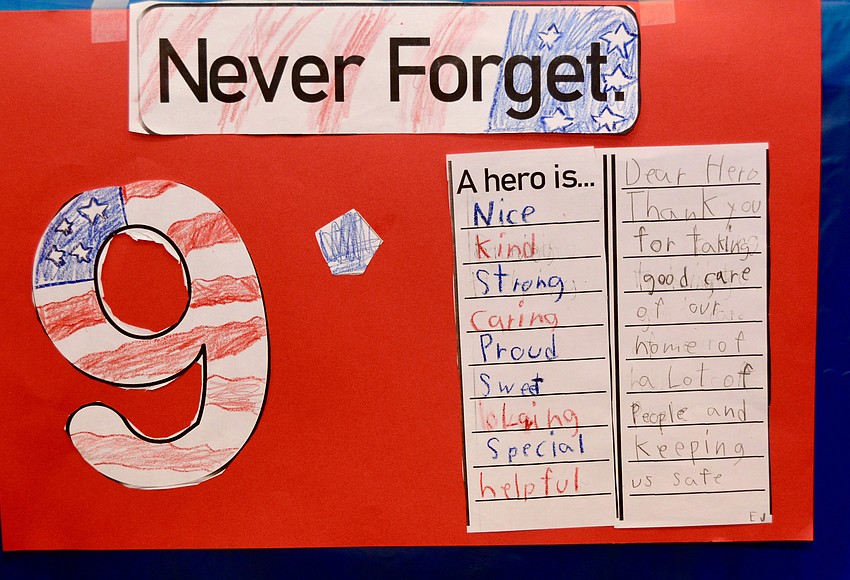 Never Forget.
9
A hero is...
Nice
Kind
Strong
Caring
Proud
Sweet
Special
helpful
Dear Hero
Thank you
for taking
good care
of our
home of
a Lot of
People and
Keeping
us safe
EJ